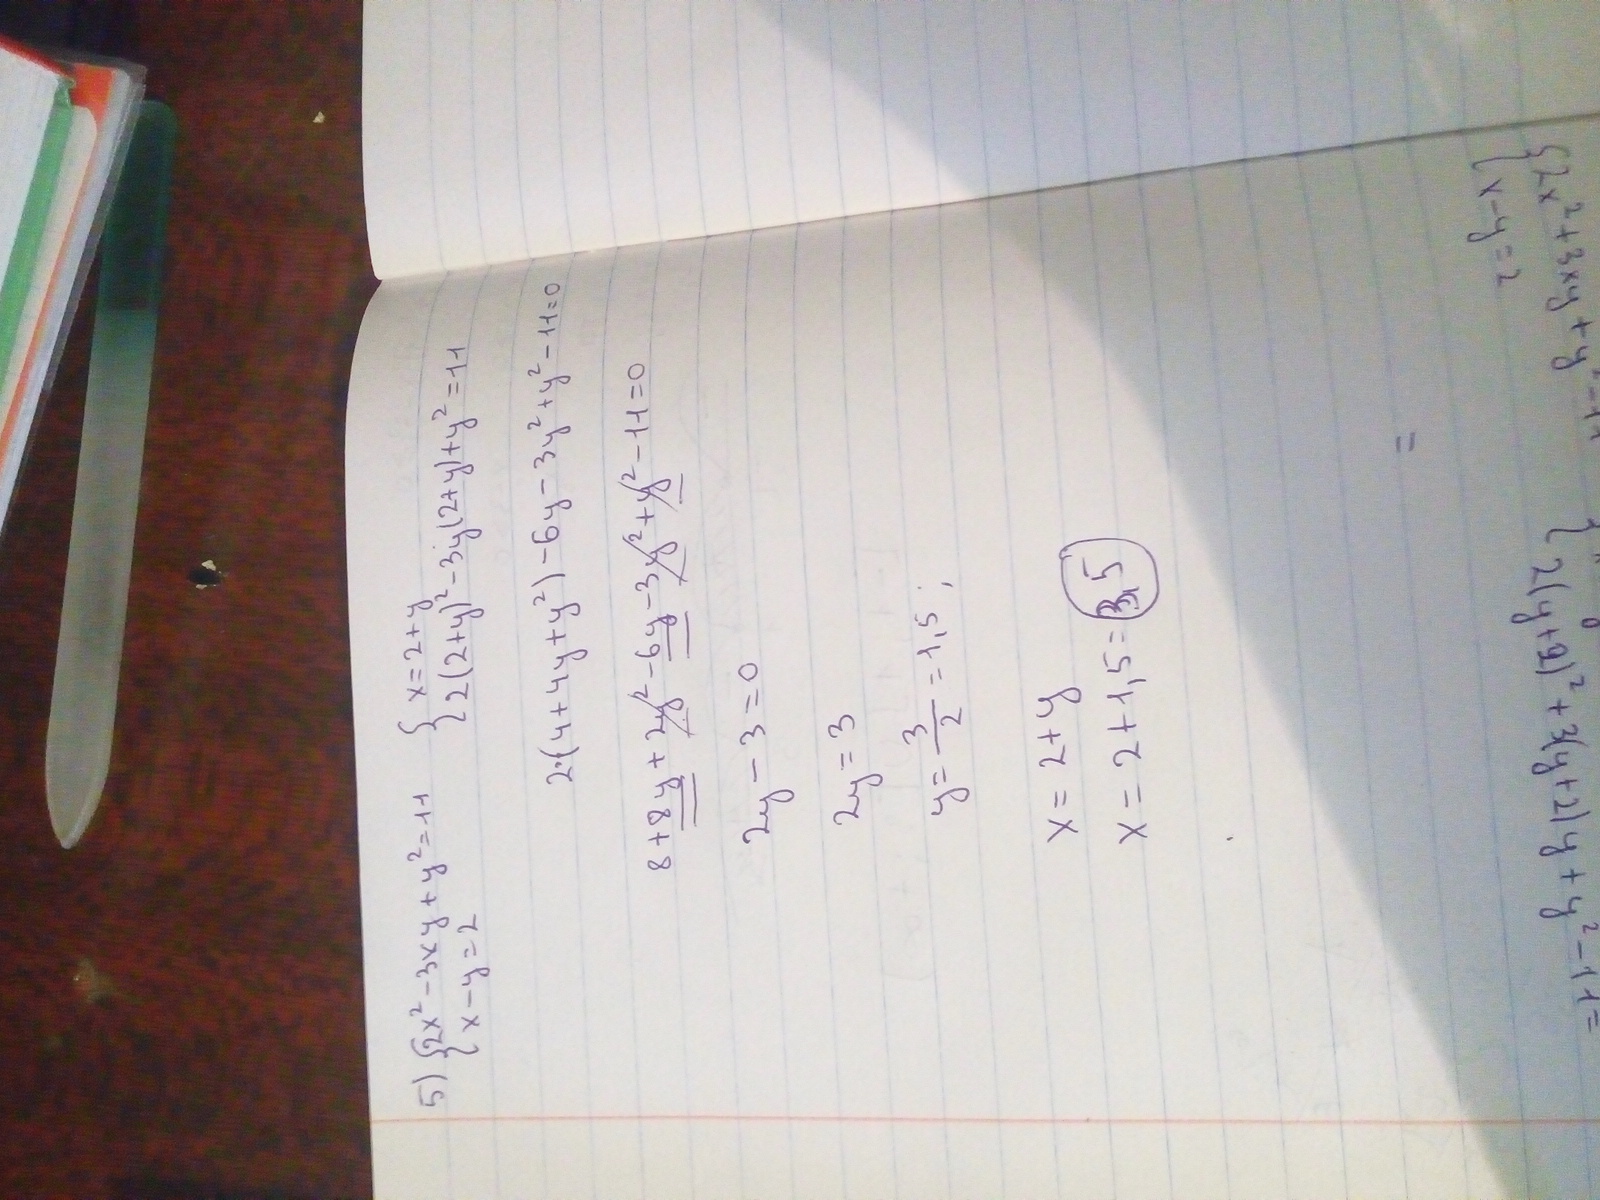 5) { 2x² - 3xy + y² = 11 { x = 2 + y
{ x - y = 2 { 2(2+y)² - 3y(2+y) + y² = 11
2·(4+4y+y²) - 6y - 3y² + y² - 11 = 0
8 + 8y + 2y² - 6y - 3y² + y² - 11 = 0
2y - 3 = 0
2y = 3
y = 3/2 = 1,5 ;
x = 2 + y
x = 2 + 1,5 = 3,5
=
{ x - y = 2
{ 2x² + 3xy + y² = 11
{ 2(y+2)² + 3(y+2)y + y² - 11 =